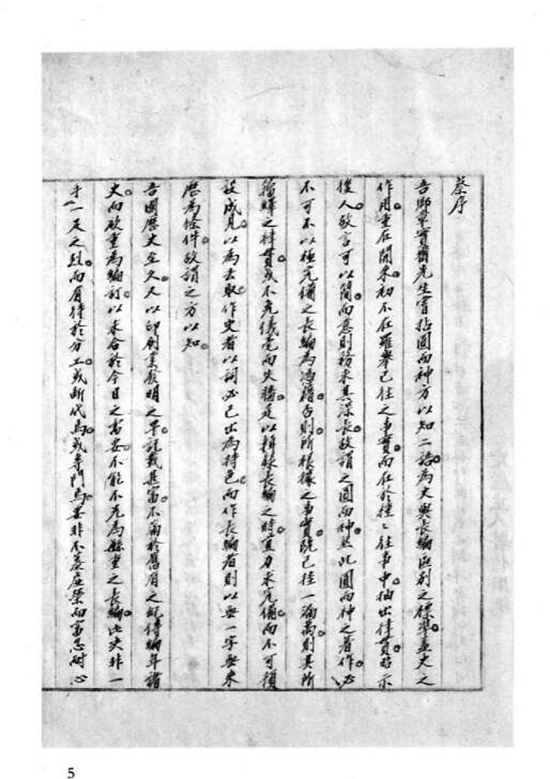 蔡序
吾鄉章實齋先生嘗拈圓而神方以知二語。為史與長編區別之標準。蓋史之
作用。重在開來。初不在羅舉已往之事實。而在於種種往事中。抽出律貫。昭示
後人。故言可以簡。而意則務求其深長。故謂之圓而神。然此圓而神之著作。必
不可不以極完備之長編為憑藉。否則所根據之事實。既已挂一漏萬。則其所
籀繹之律貫。或不免儀毫而失牆。是以輯錄長編之時。宜力求完備。而不可預
設成見。以為去取。作史者以詞必己出為特色。而作長編者則以無一字無來
歷為條件。故謂之方以知。
吾國歷史至久。又以印刷業發明之早。記載甚富。不滿於舊有之紀傳編年諸
史。而欲重為編訂。以求合於今日之需要。不能不先為繁重之長編。此決非一
手一足之烈。而有待於分工。或斷代焉。或專門焉。要非不慕虛榮而富忍耐心
5